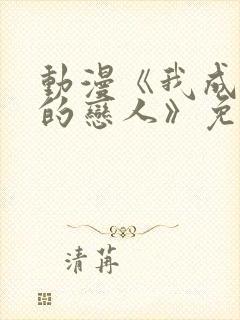 動漫《我成
的戀人》免
清苒